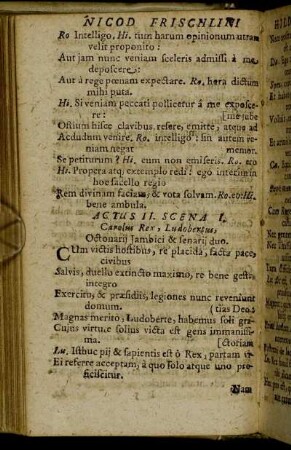 NICOD FRISCHLINI
Ro Intelligo. Hi. tum harum opinionum utram
velit proponito:
Aut jam nunc veniam sceleris admissi à me
deposcere:
Aut à rege pœnam expectare. Ro. hera dictum
mihi puta.
Hi. Si veniam peccati pollicetur à me exposce-
re: [me jube
Ostium hisce clavibus resere, emitte, atque ad
Acdudum venire. Ro. intelligo: sin autem
veniam negat memor.
Se petiturum? Hi. eum non emiseris. Ro. ero
Hi. Propera atq; extemplo redi: ego interim in
hoc sacello regio
Rem divinam faciam, & vota solvam. Ro. eo: Hi.
bene ambula.
ACTUS II. SCENA I.
Carolus Rex, Ludobertus,
Octonarij Iambici & senarij duo.
CUm victis hostibus, re placida, facta pace,
civibus
Salvis, duello extincto maximo, re bene gesta,
integro
Exercitu, & præsidiis, legiones nunc reveniunt
domum. (tias Deo.
Magnas merito, Ludoberte, habemus soli gra-
Cujus virtute solius victa est gens immanissi-
ma. [ctoriam
Lu. Isthuc pij & sapientis est ô Rex, partam vi-
Ei referre acceptam, à quo solo atque uno pro-
ficiscitur.
Nam
HILD